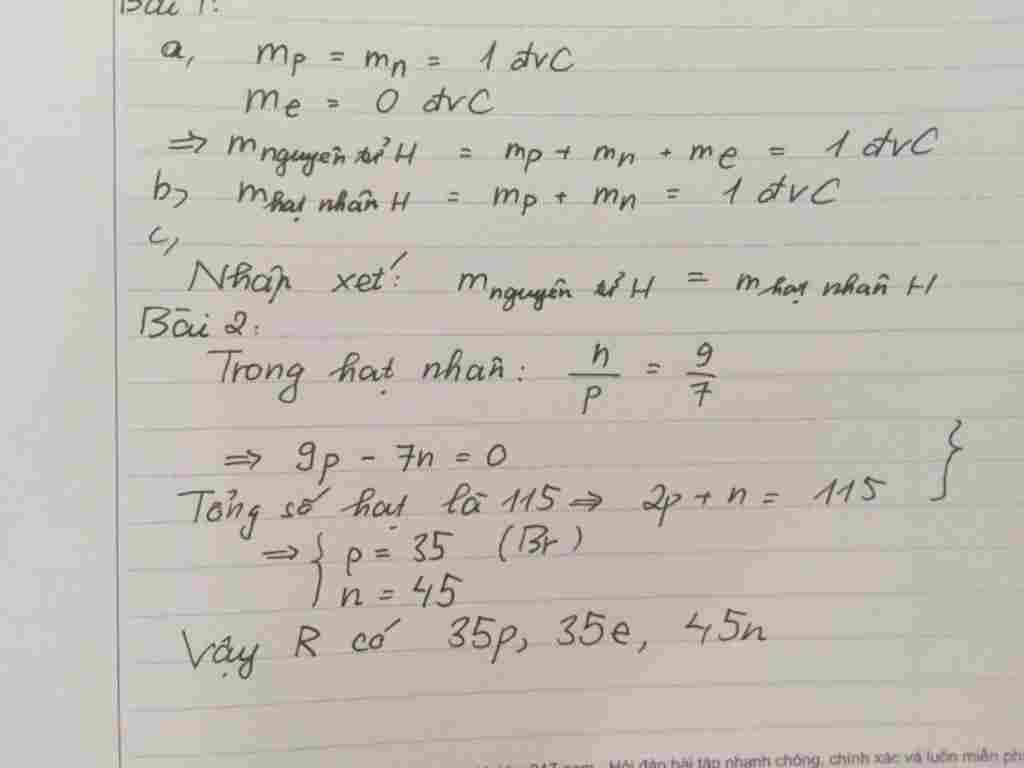 Bài 1:
a, mp = mn = 1 đvC
me = 0 đvC
⇒ m nguyên tử H = mp + mn + me = 1 đvC
b, m hạt nhân H = mp + mn = 1 đvC
c,
Nhận xét: m nguyên tử H = m hạt nhân H
Bài 2:
Trong hạt nhân: n/p = 9/7
⇒ 9p - 7n = 0 }
Tổng số hạt là 115 ⇒ 2p + n = 115
⇒ { p = 35 (Br)
n = 45
Vậy R có 35p, 35e, 45n
Hỏi đáp bài tập nhanh chóng, chính xác và luôn miễn ph